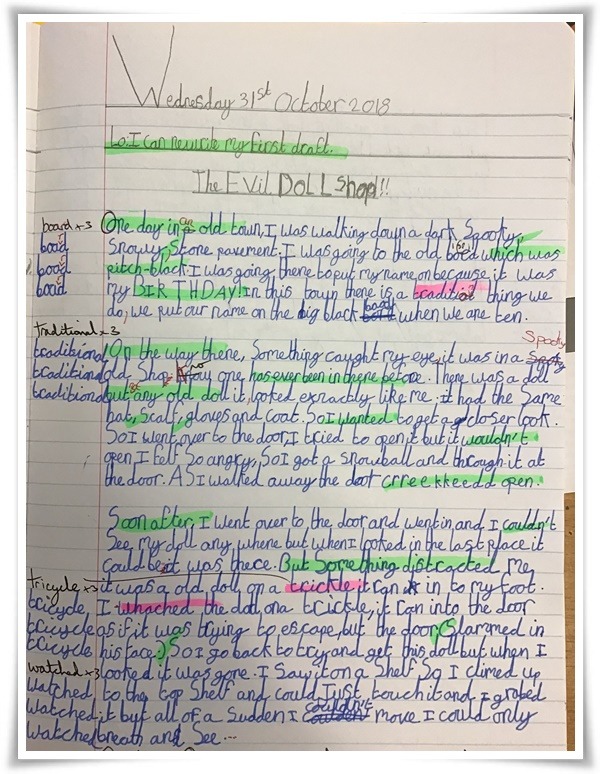 Wednesday 31st October 2018
Lo: I can rewrite my first draft.
The Evil DOLL Shop!!
board x3
boad
boad
boad
One day in an old town, I was walking down a dark Spooky,
Snowy, Stone pavement. I was going to the old boed which was
pitch-black. I was going there to put my name on because it was
my BIRTHDAY! In this town there is a traditional thing we
do, we put our name on the big black board when we are ten.
traditional x3
traditional
traditional
traditional
On the way there, Something caught my eye, it was in a Spooky
old Shop no one has ever been in there before. There was a doll
but any old doll it looked exractly like me. it had the Same
hat, Scalf, gloves and coat. So I wanted to get a closer look.
So I went over to the door, I tried to open it but it wouldn't
open I felt So angry, So I got a snowball and through it at
the door. AS I walked away the door crreekkeedd open.
Soon after, I went over to the door and went in, and I couldn't
See my doll any where but when I looked in the last place it
could be it was there. But Something distracted me,
it was a old doll on a trickle, it ran in to my foot.
I whached the doll on a trickle, it ran into the door
as if it was trying to escape, but the door Slammed in
his face, So I go back to try and get this doll but when I
looked it was gone. I Saw it on a Shelf So I climed up
to the top Shelf and could Just touch it and I grabed
it but all of a Sudden I couldn't move I could only
breath and See...
tricycle x3
tricycle
tricycle
tricycle
watched x3
watched
watched
watched